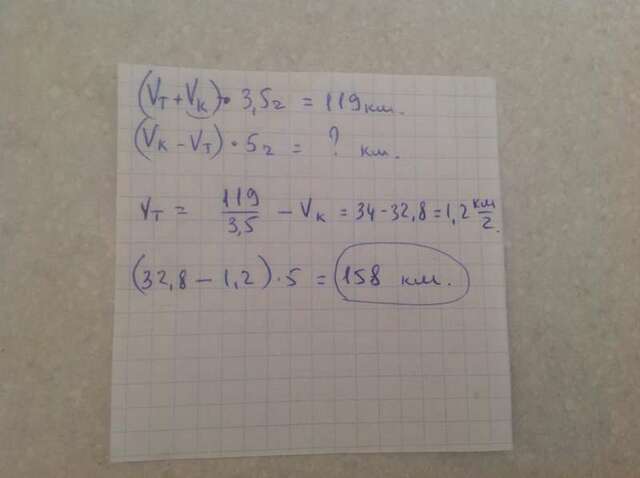 (Vт + Vк) • 3,5г = 119 км.
(Vк – Vт) • 5г = ? км.
Vт = 119/3,5 – Vк = 34 – 32,8 = 1,2 км/г.
(32,8 – 1,2) · 5 = 158 км.